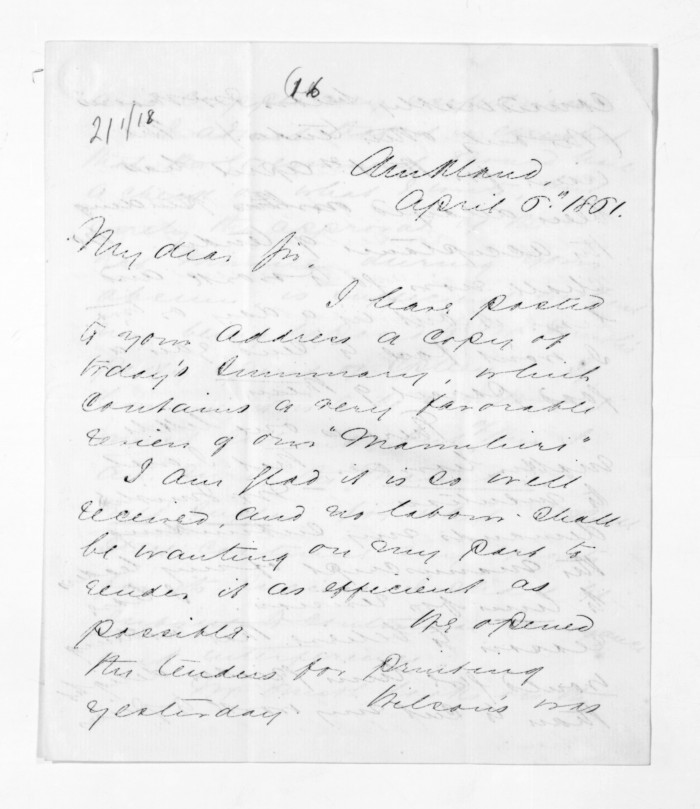 (16
21/1/18
Auckland,
April 6." 1861.
My dear Sir,
I have posted
to your address a copy of
today's Summary, which
contains a very favorable
review of our "
I am glad it is so well
received, and no labour shall
be wanting on my part to
render it as efficient as
possible. We opened
the tenders for printing
yesterday Wilson's was